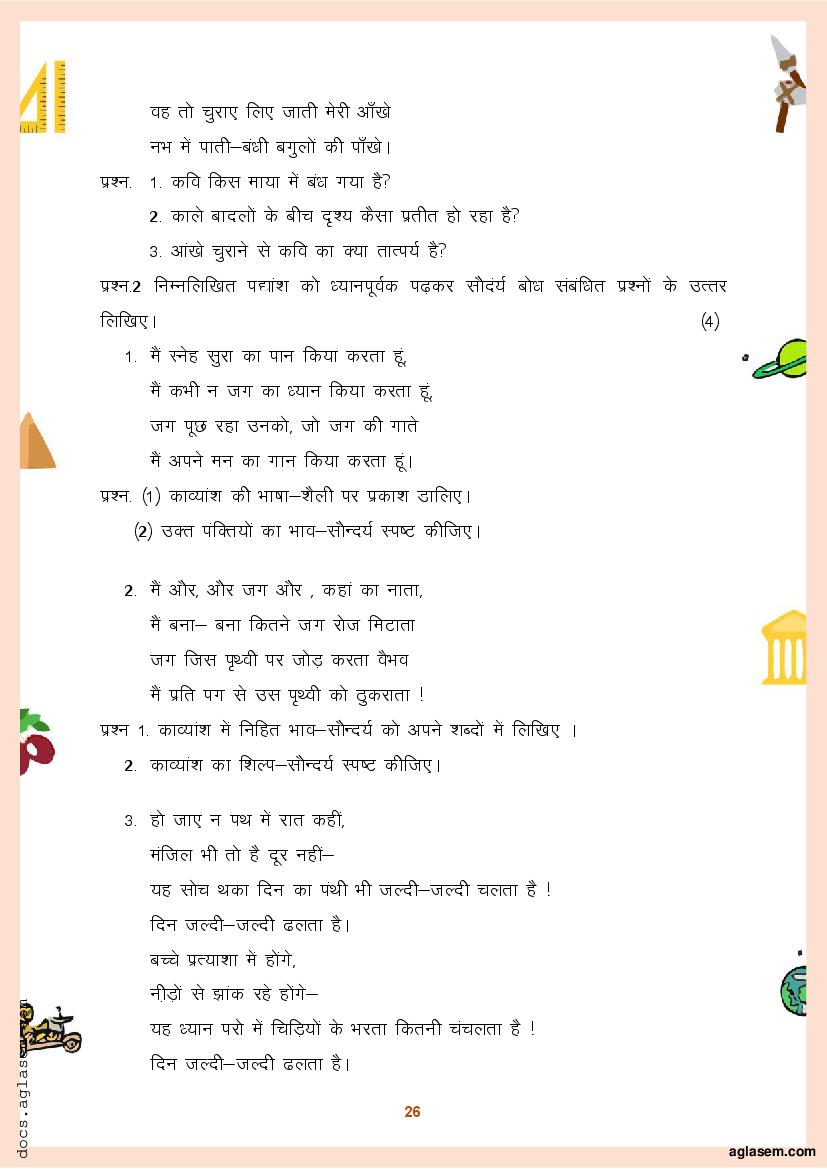 वह तो चुराए लिए जाती मेरी आँखे
नभ में पाती–बंधी बगुलों की पाँखे।
प्रश्न. 1. कवि किस माया में बंध गया है?
2. काले बादलों के बीच दृश्य कैसा प्रतीत हो रहा है?
3. आंखे चुराने से कवि का क्या तात्पर्य है?
प्रश्न.2 निम्नलिखित पद्यांश को ध्यानपूर्वक पढ़कर सौदंर्य बोध संबंधित प्रश्नों के उत्तर
लिखिए। (4)
1. मैं स्नेह सुरा का पान किया करता हूं,
मैं कभी न जग का ध्यान किया करता हूं,
जग पूछ रहा उनको, जो जग की गाते
मैं अपने मन का गान किया करता हूं।
प्रश्न. (1) काव्यांश की भाषा–शैली पर प्रकाश डालिए।
(2) उक्त पंक्तियों का भाव–सौन्दर्य स्पष्ट कीजिए।
2. मैं और, और जग और , कहां का नाता,
मैं बना– बना कितने जग रोज मिटाता
जग जिस पृथ्वी पर जोड़ करता वैभव
मैं प्रति पग से उस पृथ्वी को ठुकराता !
प्रश्न 1. काव्यांश में निहित भाव–सौन्दर्य को अपने शब्दों में लिखिए ।
2. काव्यांश का शिल्प–सौन्दर्य स्पष्ट कीजिए।
3. हो जाए न पथ में रात कहीं,
मंजिल भी तो है दूर नहीं–
यह सोच थका दिन का पंथी भी जल्दी–जल्दी चलता है !
दिन जल्दी–जल्दी ढलता है।
बच्चे प्रत्याशा में होंगे,
नीड़ों से झांक रहे होंगे–
यह ध्यान परो में चिड़ियों के भरता कितनी चंचलता है !
दिन जल्दी–जल्दी ढलता है।
26
docs.aglasem
aglasem.com